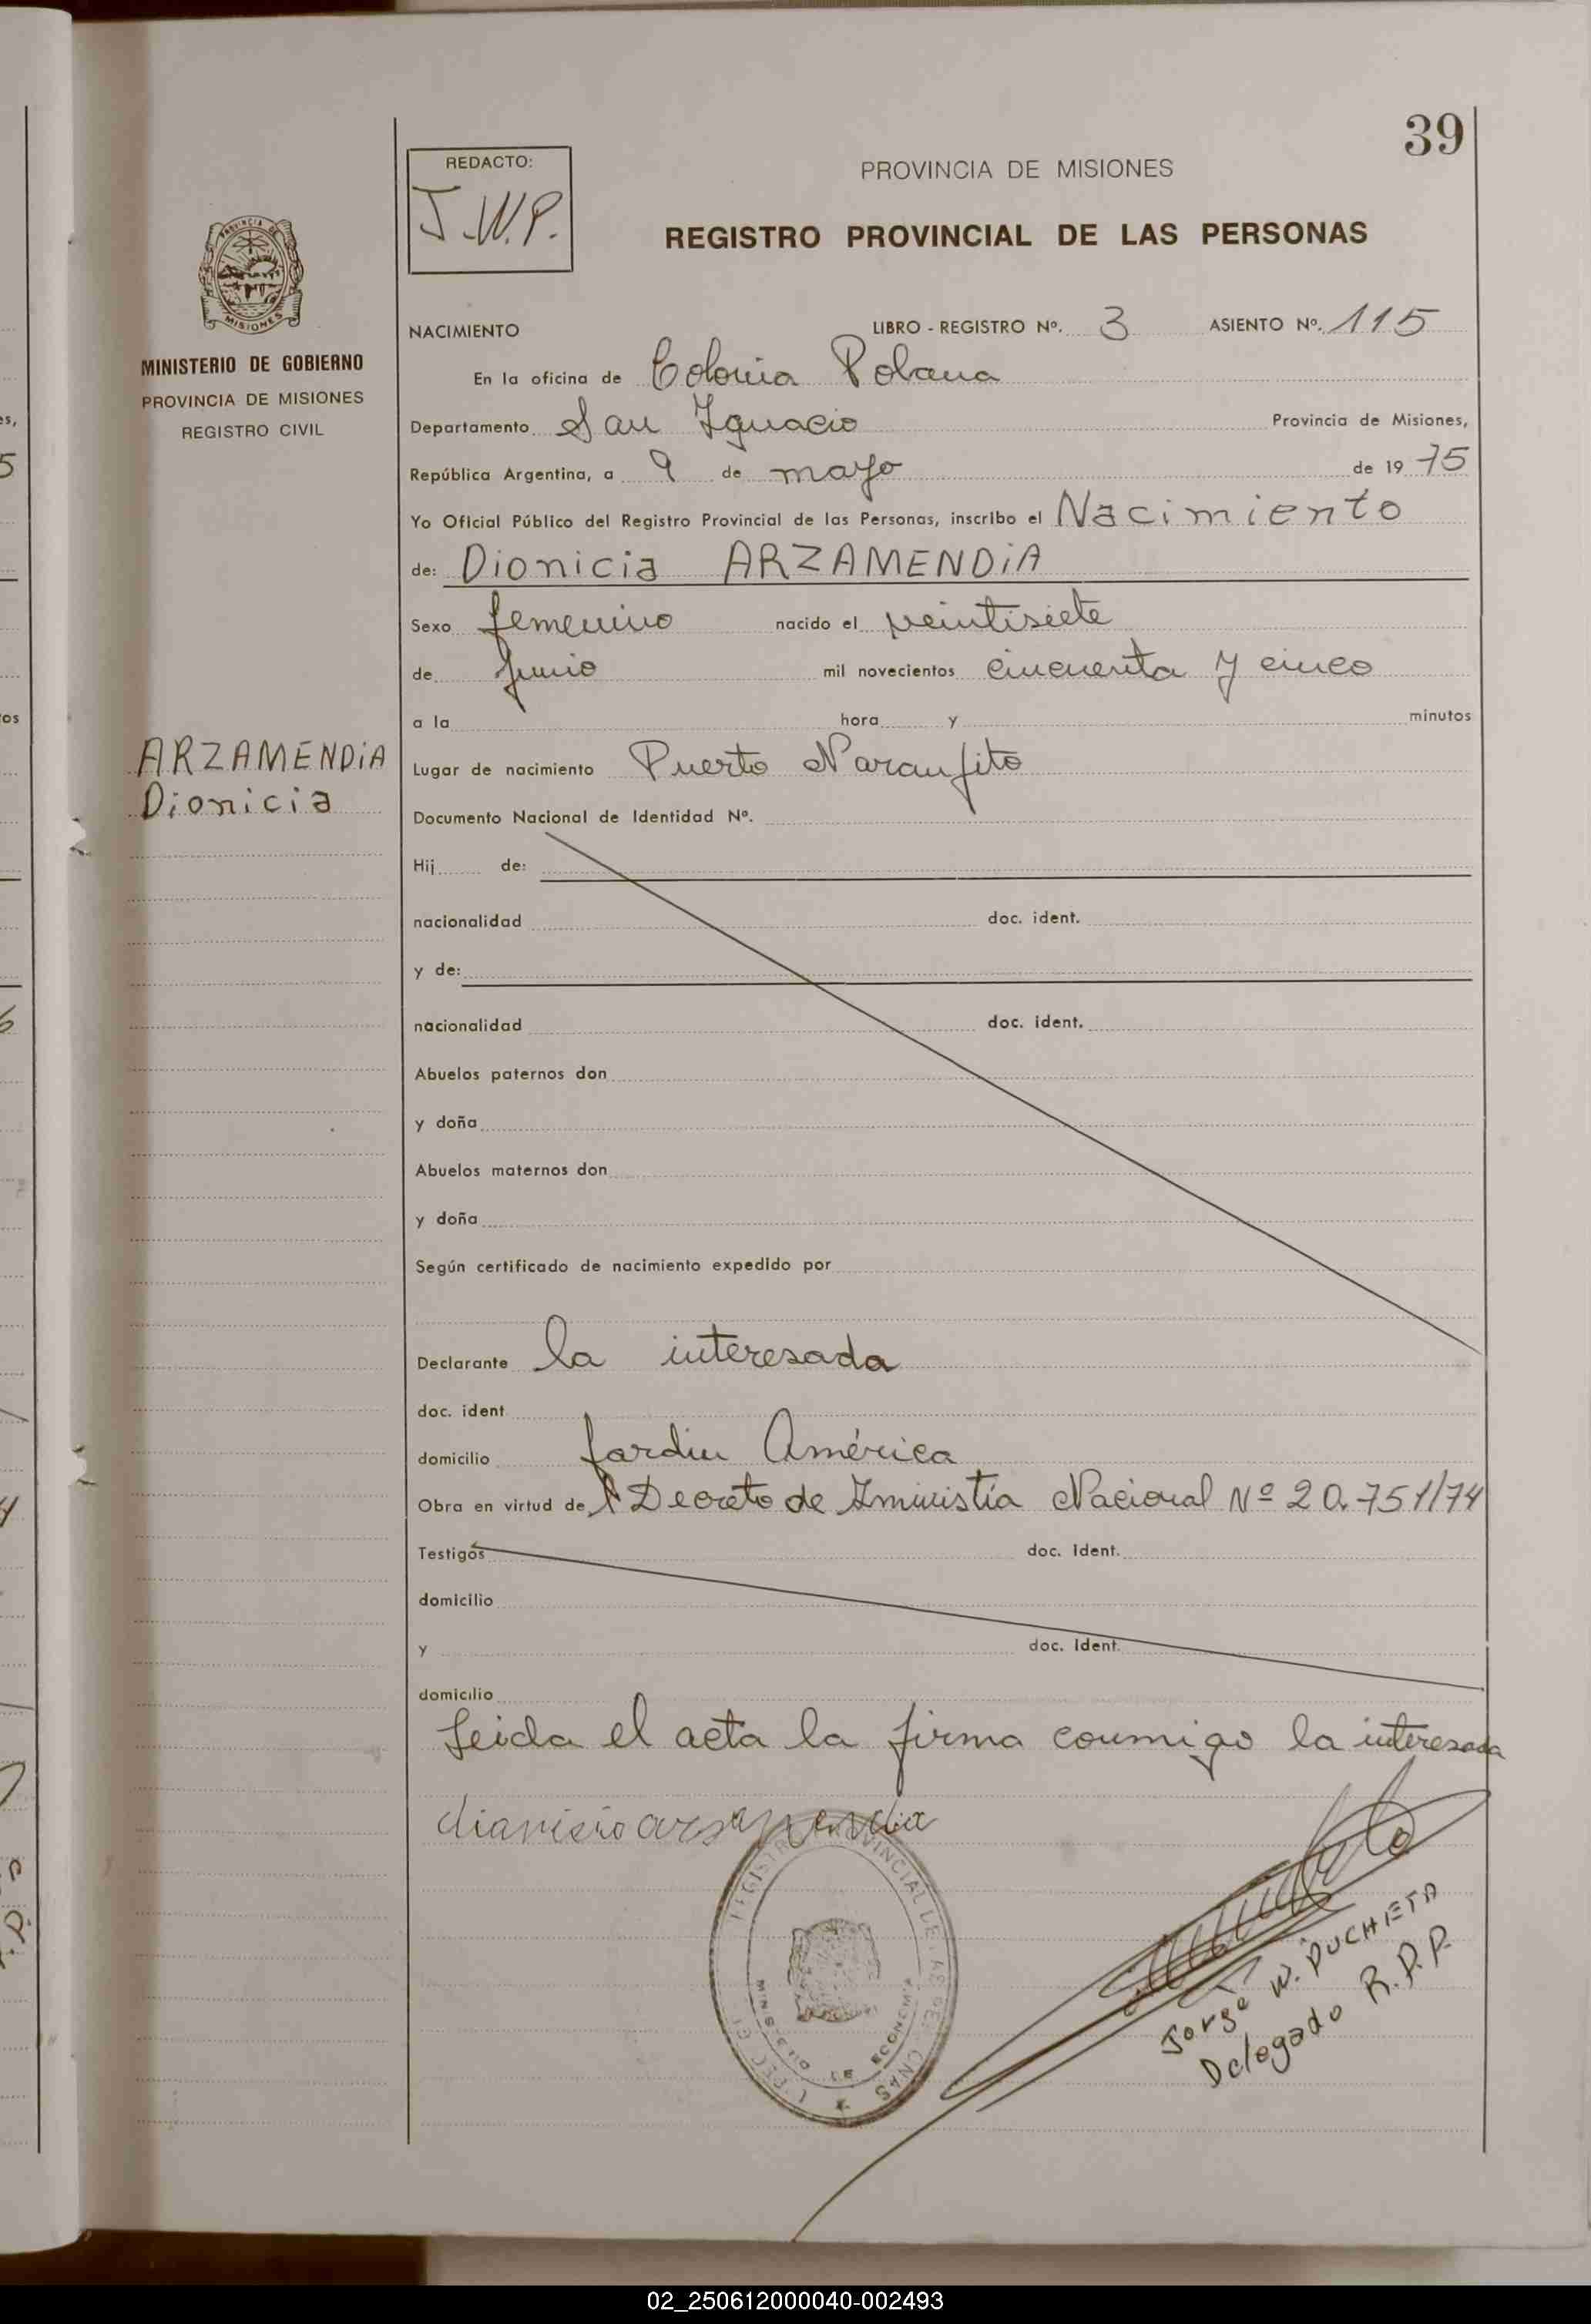 39
REDACTO:
J.W.P.
PROVINCIA DE MISIONES
REGISTRO PROVINCIAL DE LAS PERSONAS
MINISTERIO DE GOBIERNO
PROVINCIA DE MISIONES
REGISTRO CIVIL
NACIMIENTO LIBRO - REGISTRO Nº. 3 ASIENTO Nº. 115
En la oficina de Colonia Polana
Departamento San Ignacio Provincia de Misiones,
República Argentina, a 9 de mayo de 19 75
Yo Oficial Público del Registro Provincial de las Personas, inscribo el Nacimiento
de: Dionicia ARZAMENDiA
Sexo femenino nacido el veintisiete
de Junio mil novecientos cincuenta y cinco
a la hora y minutos
ARZAMENDiA
Dionicia
Lugar de nacimiento Puerto Naranjito
Documento Nacional de Identidad Nº.
Hij de:
nacionalidad doc. ident.
y de:
nacionalidad doc. ident.
Abuelos paternos don
y doña
Abuelos maternos don
y doña
Según certificado de nacimiento expedido por
Declarante la interesada
doc. ident
domicilio Jardin América
Obra en virtud de Decreto de Aministía Nacional Nº 20.751/74
Testigos doc. ident.
domicilio
y doc. ident.
domicilio
Leida el acta la firma conmigo la interesada
Jorge W. DUCHIETA
Delegado R.P.P.
02_250612000040-002493